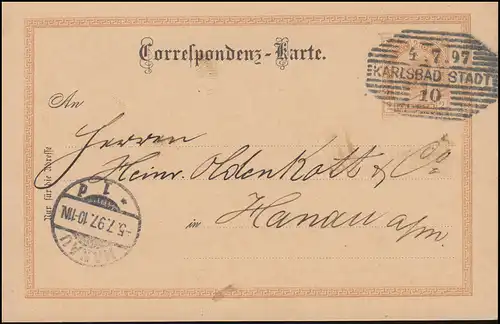 Correspondenz-Karte.
4 7.97
KARLSBAD STADT
10
An
Herren
Heinr. Oldenkott & Co.
in Hanau a/m.
Nur für die Adresse
HANAU
-5.7.97.10-11N.
* 1 d